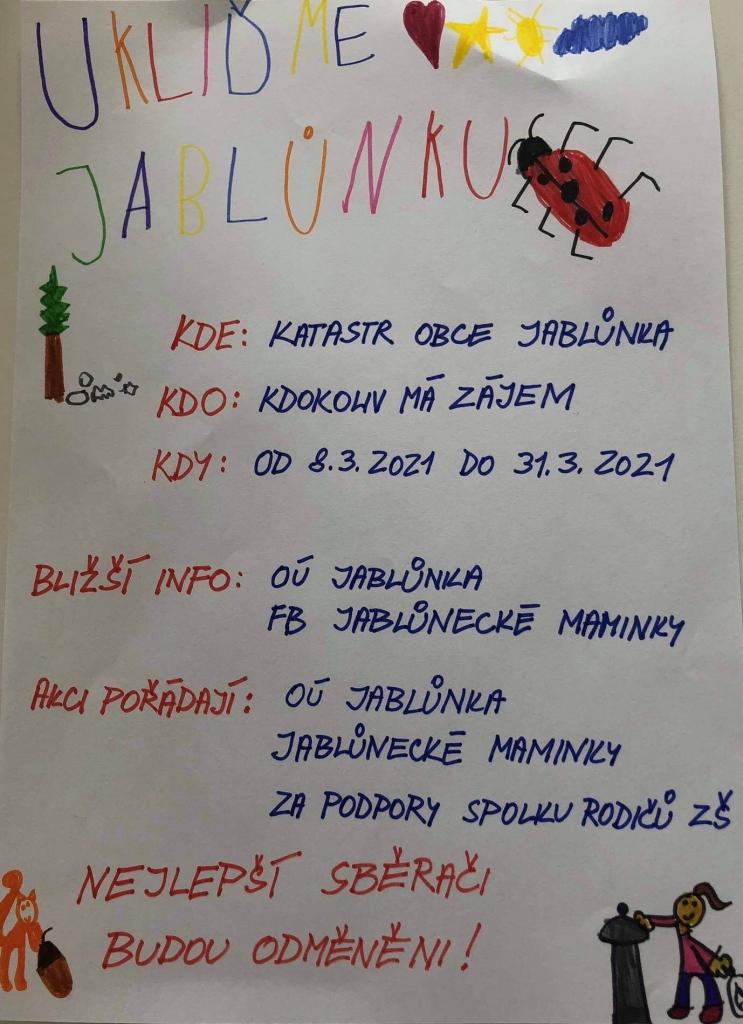 UKLIĎME
JABLŮNKU
KDE: KATASTR OBCE JABLŮNKA
KDO: KDOKOLIV MÁ ZÁJEM
KDY: OD 8.3.2021 DO 31.3.2021
BLIŽŠÍ INFO: OÚ JABLŮNKA
FB JABLŮNECKÉ MAMINKY
AKCI POŘÁDAJÍ: OÚ JABLŮNKA
JABLŮNECKÉ MAMINKY
ZA PODPORY SPOLKU RODIČŮ ZŠ
NEJLEPŠÍ SBĚRAČI
BUDOU ODMĚNĚNI!